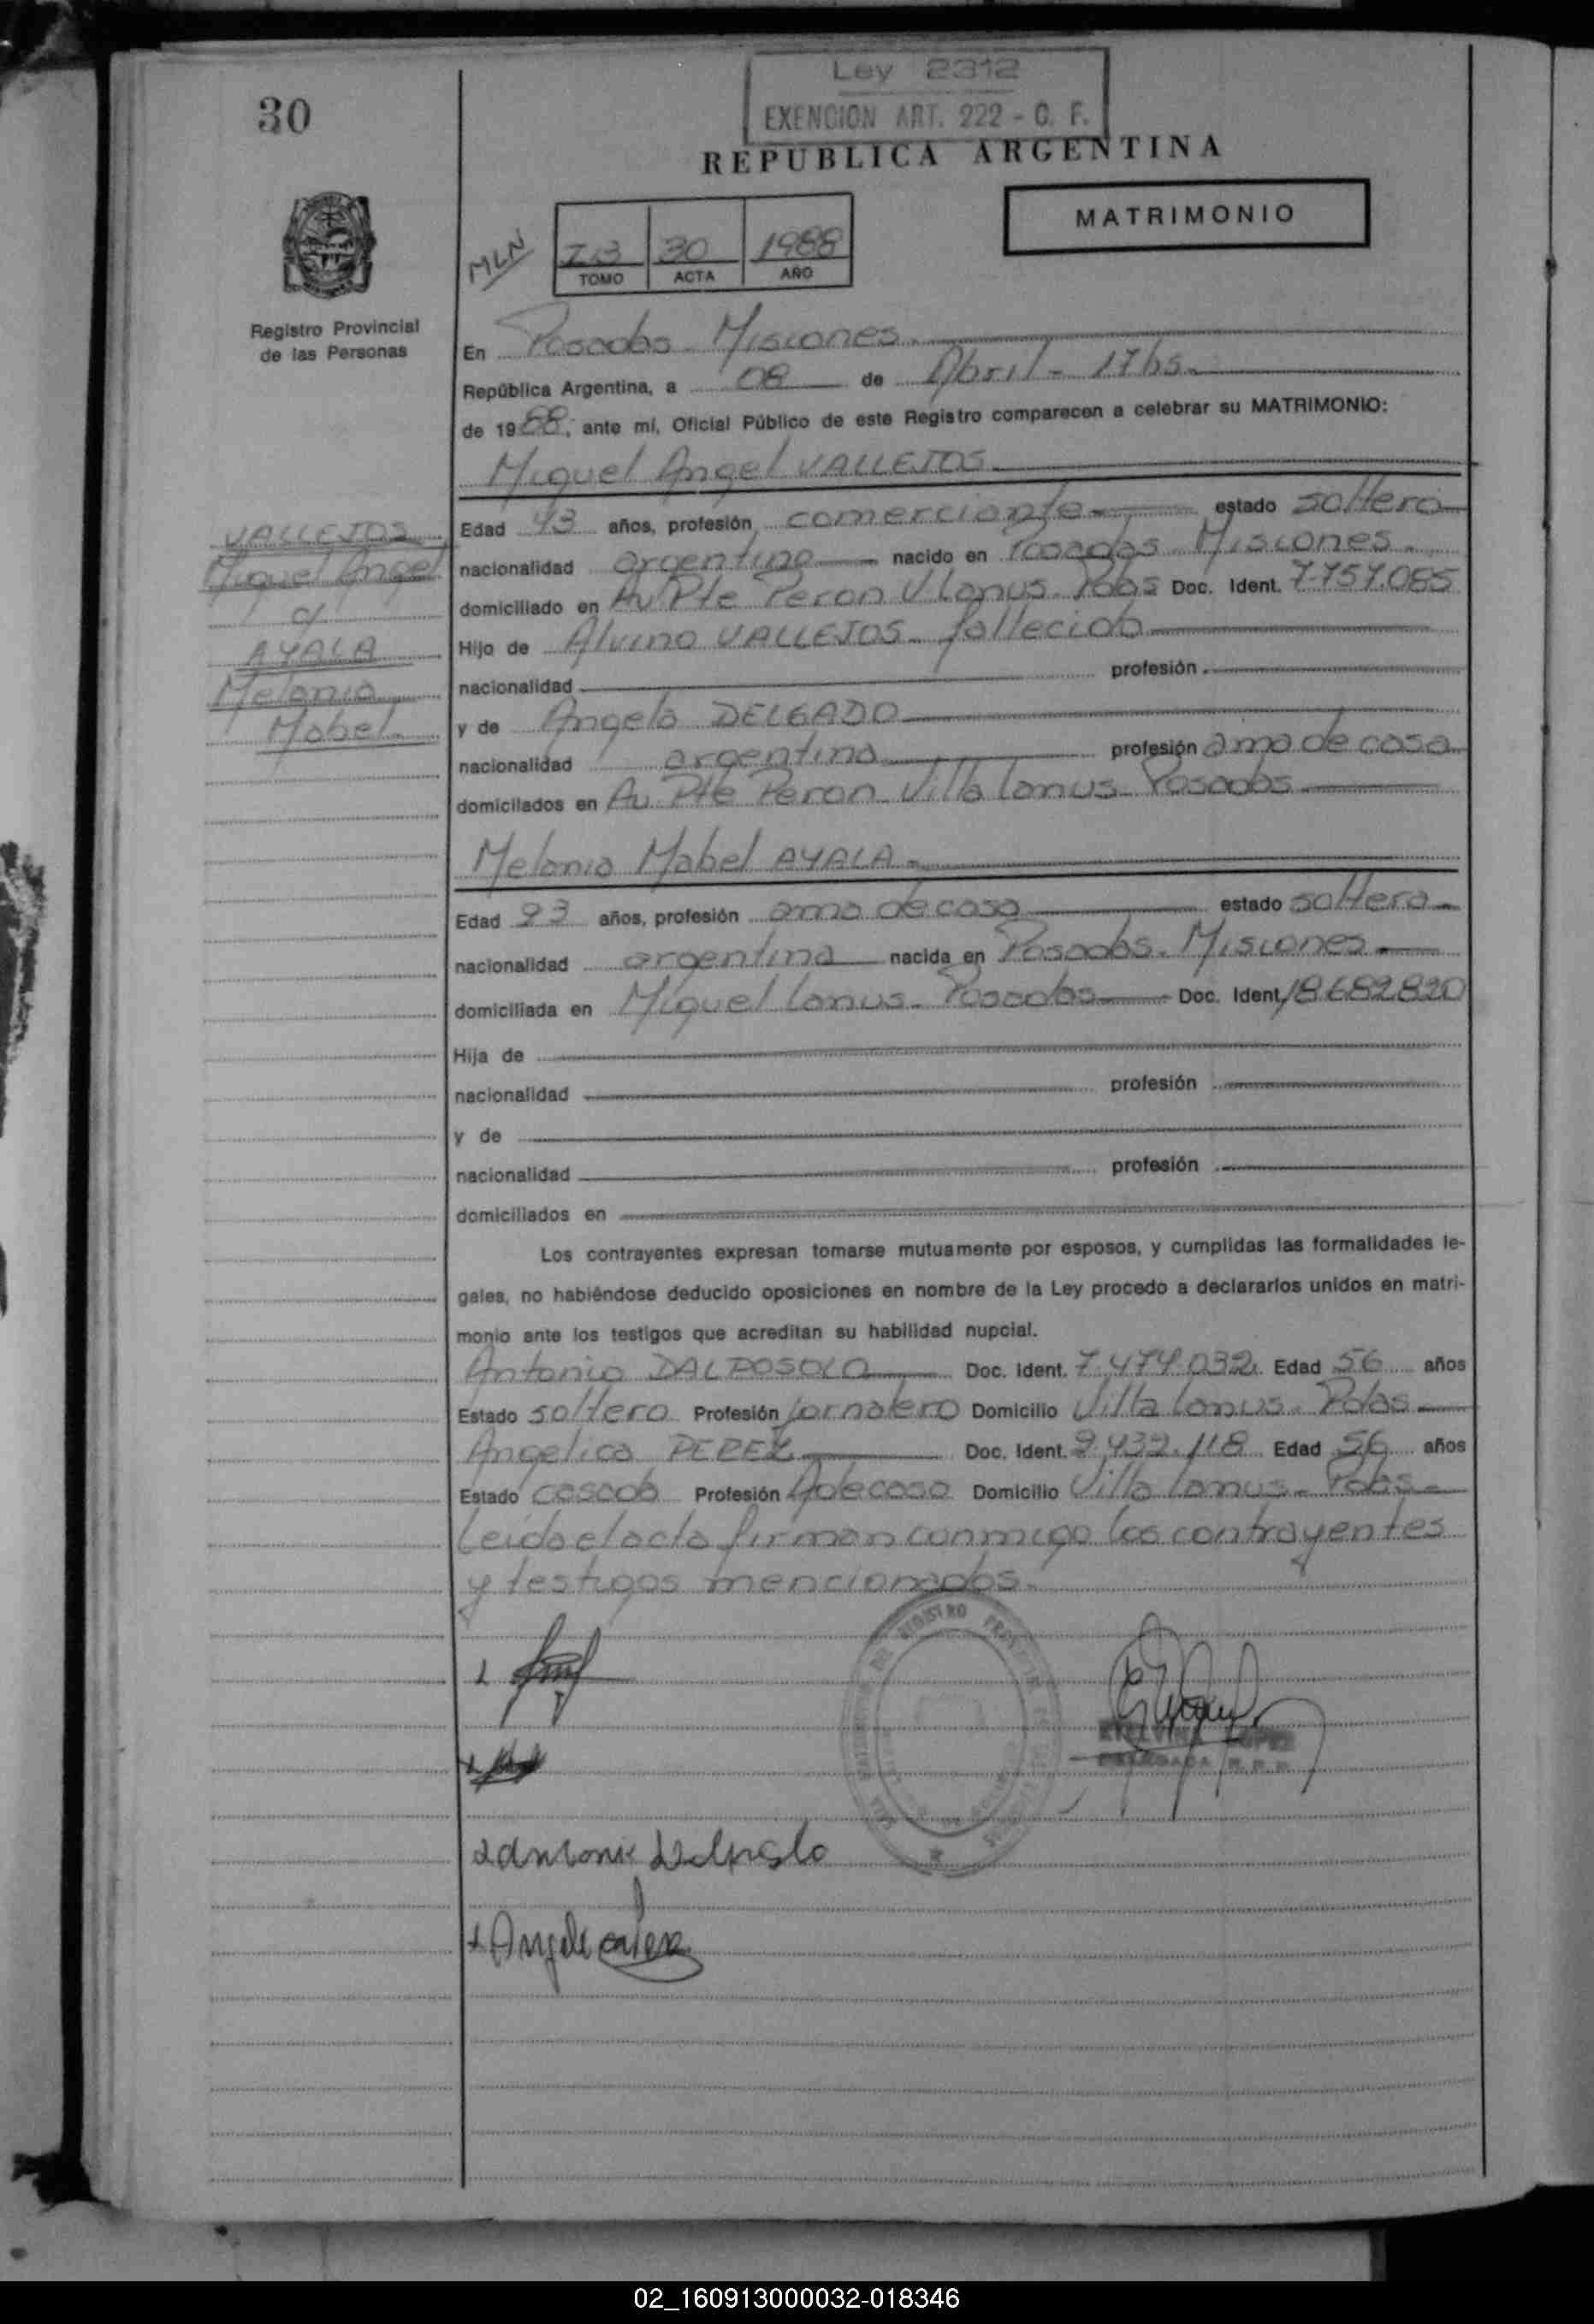 Ley 2312
EXENCION ART. 222 - C. F.
30
REPUBLICA ARGENTINA
MATRIMONIO
MLN
30 1988
TOMO ACTA AÑO
Registro Provincial
de las Personas
En Posadas Misiones
República Argentina, a 08 de Abril - 17 hs.
de 1988, ante mí, Oficial Público de este Registro comparecen a celebrar su MATRIMONIO:
Miguel Angel VALLEJOS
VALLEJOS
Miguel Angel
c/
AYALA
Melania
Mabel
Edad 43 años, profesión comerciante estado soltero
nacionalidad argentino nacido en Posadas Misiones
domiciliado en Av Pte Peron V Lanus. Pdas Doc. Ident. 7.757.085
Hijo de Alvino VALLEJOS - fallecido
nacionalidad profesión
y de Angela DELGADO
nacionalidad argentina profesión ama de casa
domiciliados en Av Pte Peron Villa Lanus - Posadas
Melania Mabel AYALA
Edad 23 años, profesión ama de casa estado soltera
nacionalidad argentina nacida en Posadas - Misiones
domiciliada en Miguel Lanus - Posadas Doc. Ident. 18.682.820
Hija de
nacionalidad profesión
y de
nacionalidad profesión
domiciliados en
Los contrayentes expresan tomarse mutuamente por esposos, y cumplidas las formalidades le-
gales, no habiéndose deducido oposiciones en nombre de la Ley procedo a declararlos unidos en matri-
monio ante los testigos que acreditan su habilidad nupcial.
Antonio DALPOSOLO Doc. Ident. 7.474.032 Edad 56 años
Estado soltero Profesión Jornalero Domicilio Villa Lanus - Pdas
Angelica PEREZ Doc. Ident. 9.432.118 Edad 56 años
Estado casada Profesión A de casa Domicilio Villa Lanus - Pdas
Leida el acta firman conmigo los contrayentes
y testigos mencionados.
ETELVINA LOPEZ
DELEGADA R. P. P.
02_160913000032-018346